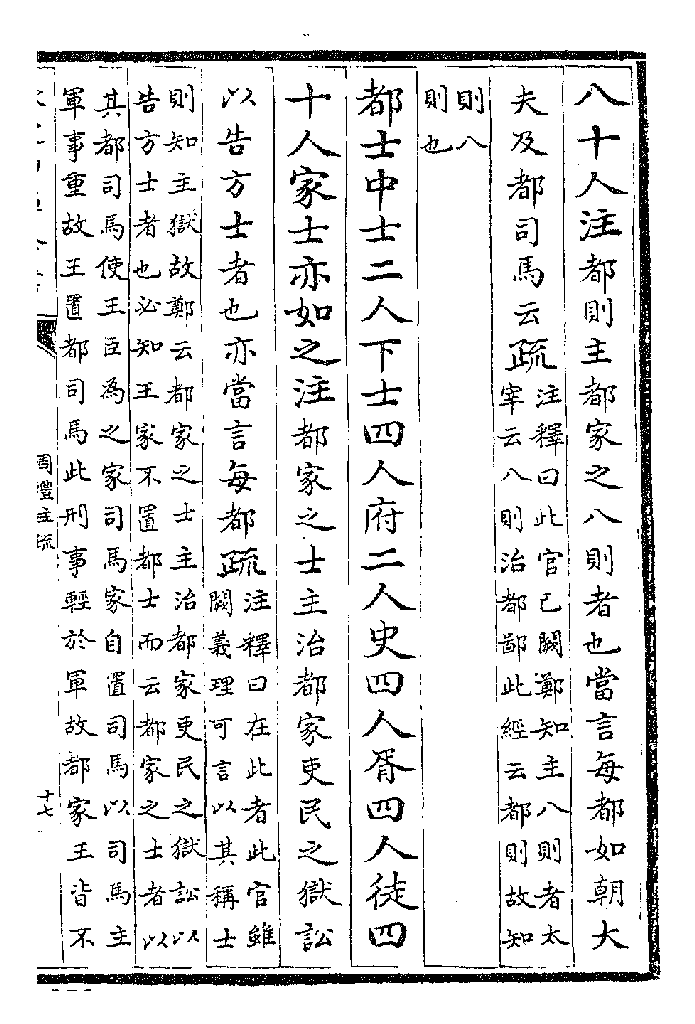 八十人注都則主都家之八則者也當言每都如朝大
夫及都司馬云疏注釋曰此官已闕鄭知主八則者太
宰云八則治都鄙此經云都則故知
則八
則也
都士中士二人下士四人府二人史四人胥四人徒四
十人家士亦如之注都家之士主治都家吏民之獄訟
以告方士者也亦當言每都疏注釋曰在此者此官雖
闕義理可言以其稱士
則知主獄故鄭云都家之士主治都家吏民之獄訟以
告方士者也必知王家不置都士而云都家之士者以
其都司馬使王臣為之家司馬家自置司馬以司馬主
軍事重故王置都司馬此刑事輕於軍故都家王皆不
周禮注疏
十七